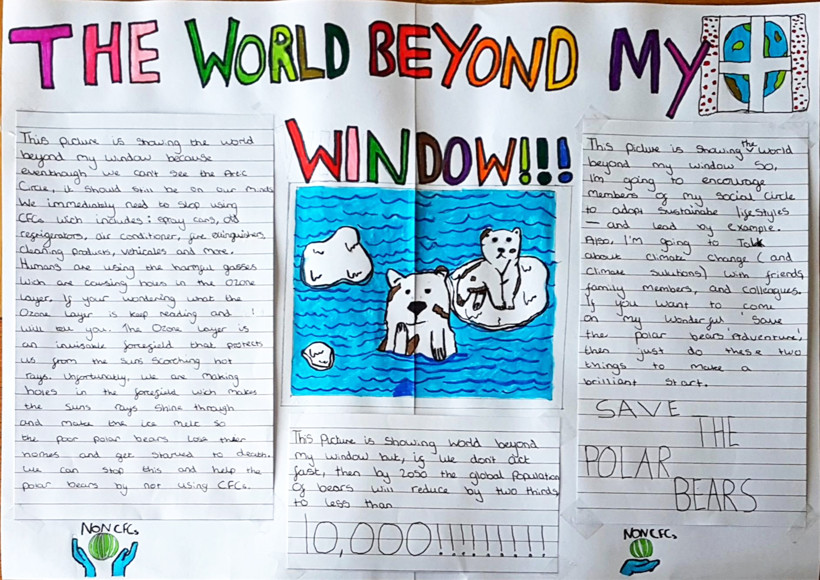 THE WORLD BEYOND MY
WINDOW!!!
This picture is showing the world
beyond my window because
eventhough we can't see the Artic
Circle, it should still be on our minds
We immediately need to stop using
CFCs wich includes: spray cans, old
refrigirators, air conditioner, fire exinguishers
cleaning products, vehicales and more.
Humans are using the harmful gasses
wich are causing holes in the Ozone
Layer. If your wondering what the
Ozone Layer is keep reading and I
will tell you. The Ozone Layer is
an invisable forcefield that protects
us from the suns scorching hot
rays. Unfortunatly, we are making
holes in the forcefield wich makes
the suns rays shine through
and make the ice melt so
the poor polar bears lose their
homes and get starved to death.
We can stop this and help the
polar bears by not using CFCs.
NON CFCs
This picture is showing world beyond
my window but, if we don't act
fast, then by 2050 the global population
of bears will reduce by two thirds
to less than
10,000!!!!!!!!!
This picture is showing the world
beyond my window so,
I'm going to encourage
members of my social circle
to adopt sustainable lifestyles
– and lead by example.
Also, I'm going to talk
about climate change (and
climate solutions) with friends,
family members, and colleagues.
If you want to come
on my wonderful 'save
the polar bears Adventure',
then just do these two
things to make a
brilliant start.
SAVE
THE
POLAR
BEARS
NON CFCs